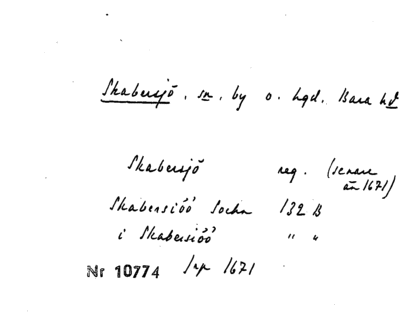 Skabersjö, sn, by o. hgd. Bara hd
Skabersjö reg. (senare än 1671)
Skabersióó Sochn 132 B
i Skabersióó " "
Nr 10774 Jrp 1671